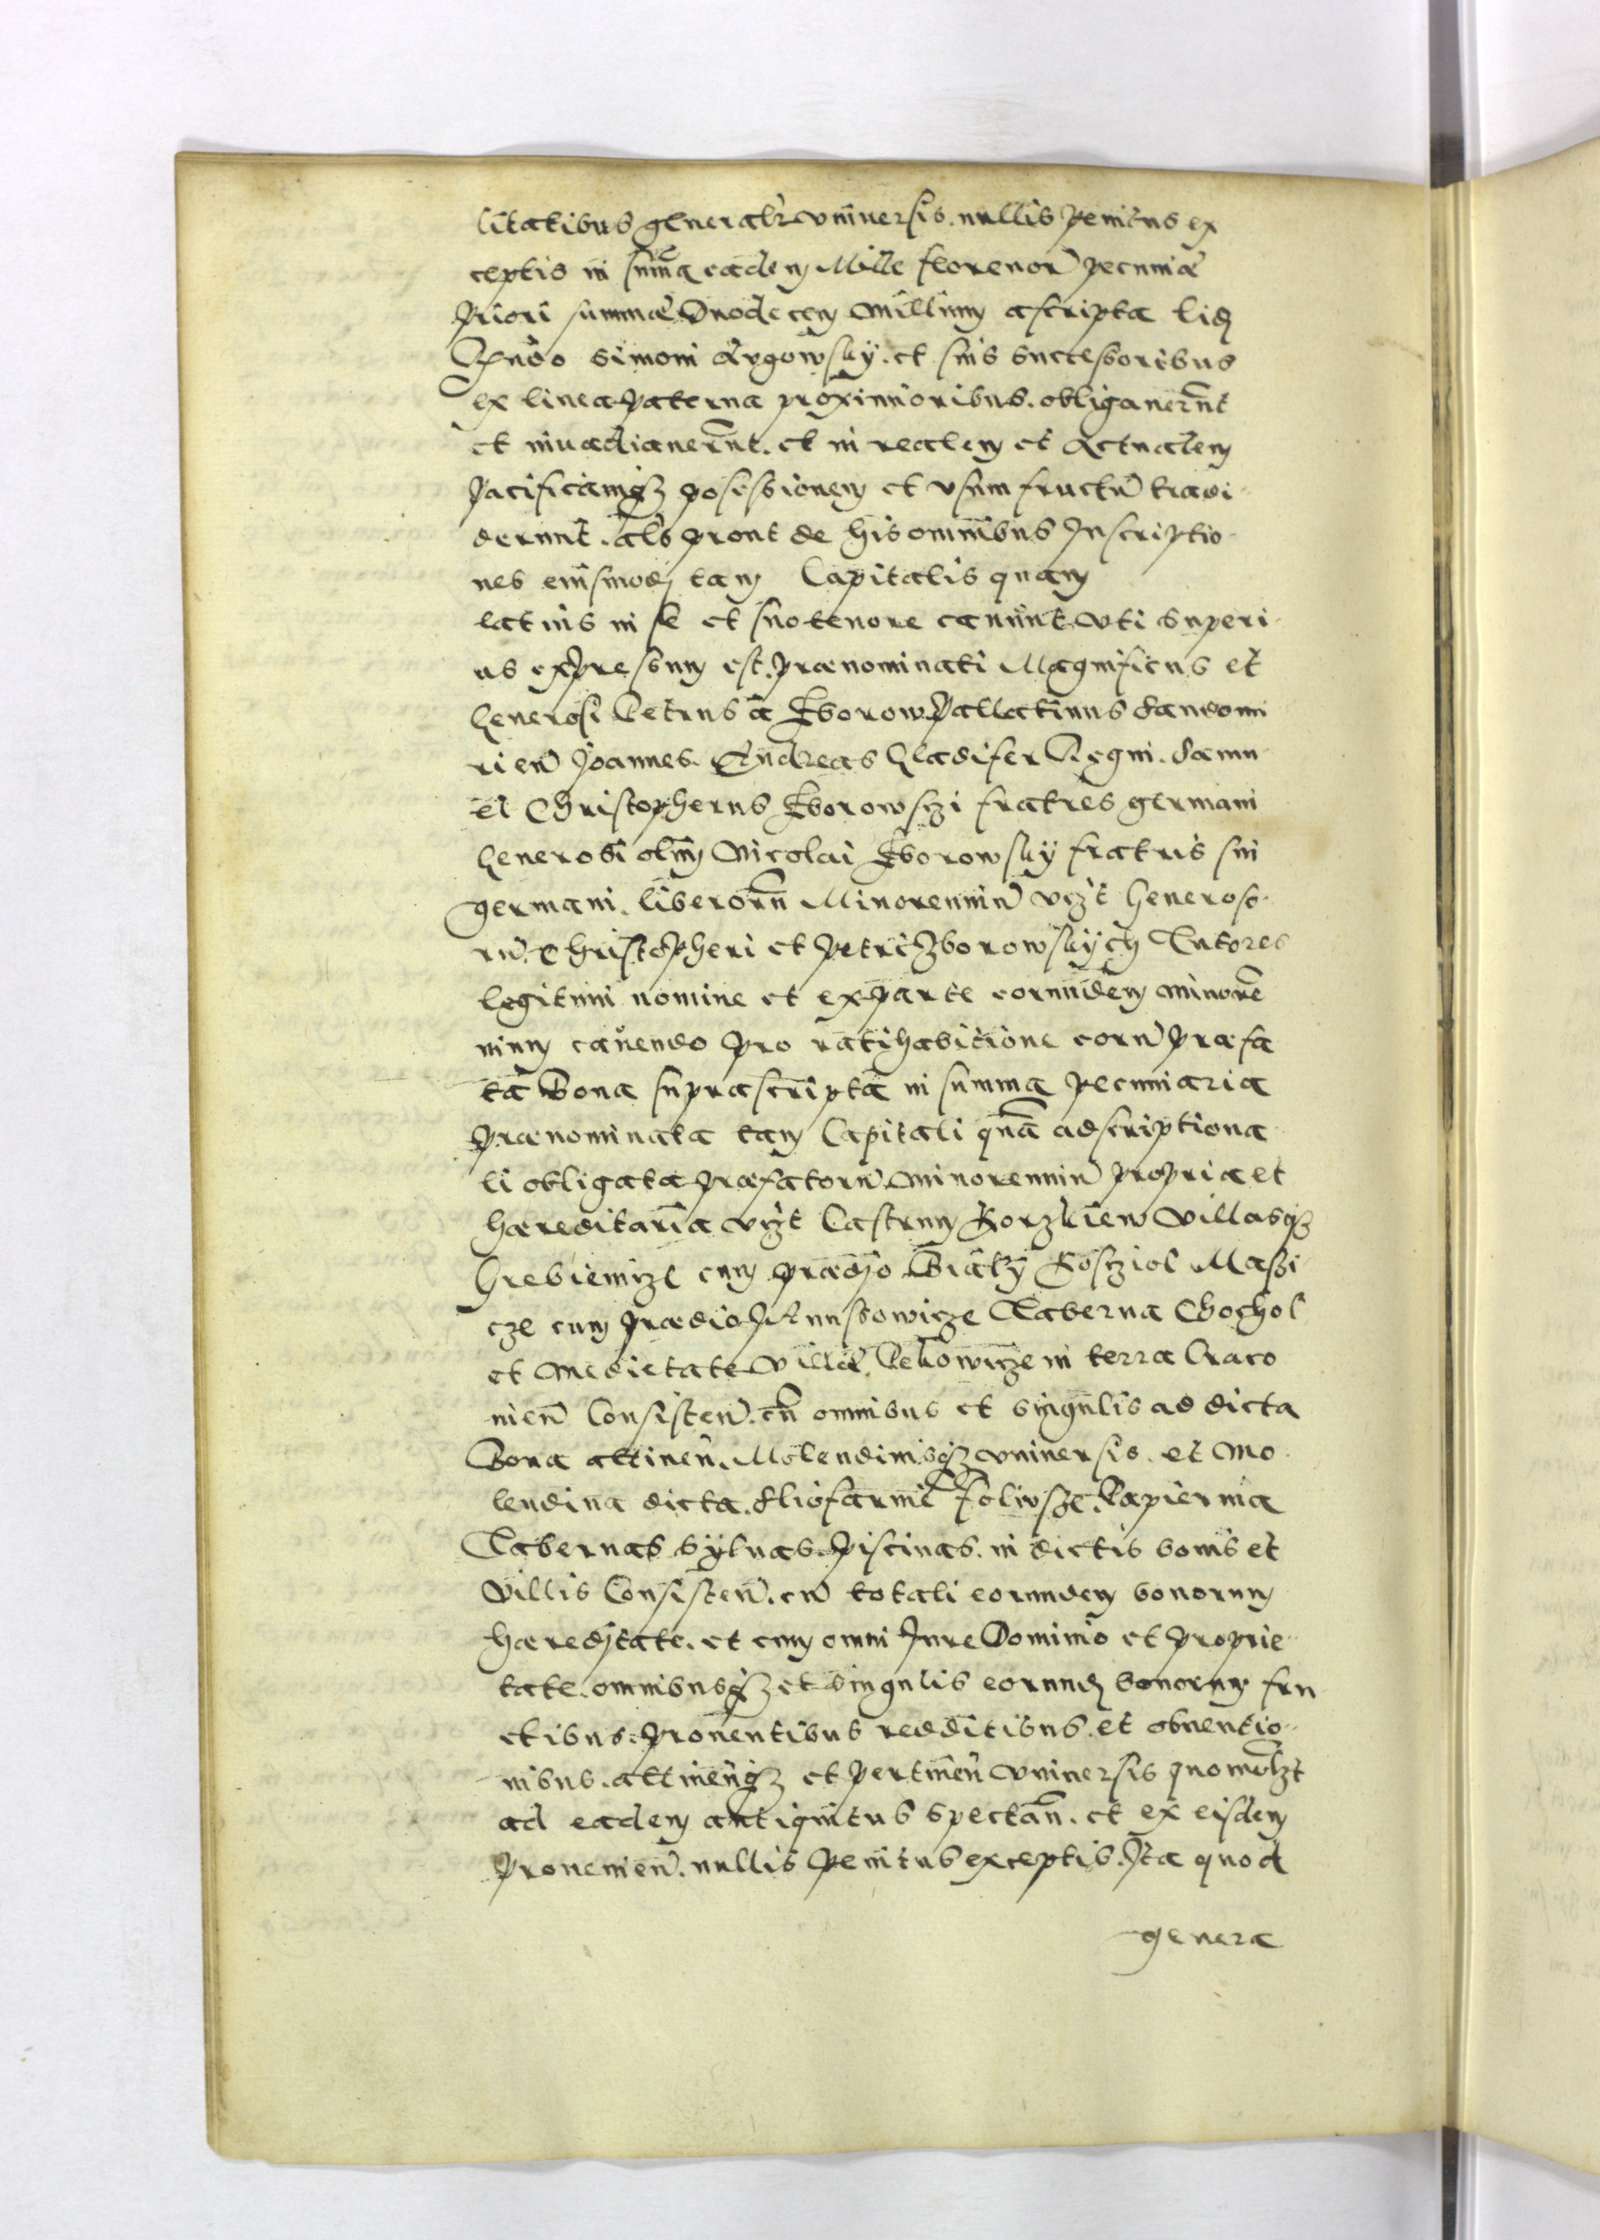 litatibus generalr vniuersis. nullis penitus ex
ceptis in summa eadem Mille florenor pecuniæ
priori summæ Duodecem millium ascripta
Simoni et suis successoribus
ex linea paterna proximioribus. obligauerunt
et inuadiauerunt. et in realem et Actualem
pacificamqȝ possessionem et vsum fructu tradi
derunt. als prout de his omnibus Inscriptio
nes eiusmodj tam Capitalis quam
latius in se et suo tenore canunt vti superi
us expressum est. prænominati Magnificus et
Generosi Petrus a Zborow Pallatinus Sandomi
rien Joannes. Andreas Gladifer Regni. Samu
el Christopherus Zborowsczi fratres germani
Generosi olim Nicolai Zborowsky fratris sui
germani. liberorum Minorenniu vizt Generoso
ru Christopheri et Petri Zborowskych Tutores
legitimi nomine et ex parte eorundem minoren
nium cauendo pro ratihabitione eoru præfa
ta Bona suprascripta in summa pecuniaria
prænominata tam Capitali qua adscriptiona
li obligata præfatoru minorenniu propria et
hæreditaria vizt Castrum Korzkiew villasqȝ
Grebienicze cum prædjo Biaky Koscziol Maszi
cze cum prædio Januszowicze Taberna Chochol
et medietate villæ in terra Craco
uien Consisten. cu omnibus et singulis ad dicta
Bona attinen. Molendinisqȝ vniuersis. et Mo
lendina dicta. Papiernia
Tabernas syluas. piscinas. in dictis bonis et
villis Consisten. cu totali eorundem bonorum
hæredjtate. et cum omni Jure Dominio et proprie
tate. omnibusqȝ et singulis eorund bonorum fru
ctibus. prouentibus redditibus. et obuentio
nibus. attinenqȝ et pertinen vniuersis quomolzt
ad eadem antiquitus spectan. et ex eisdem
prouenien. nullis penitus exceptis. Jta quod
genera